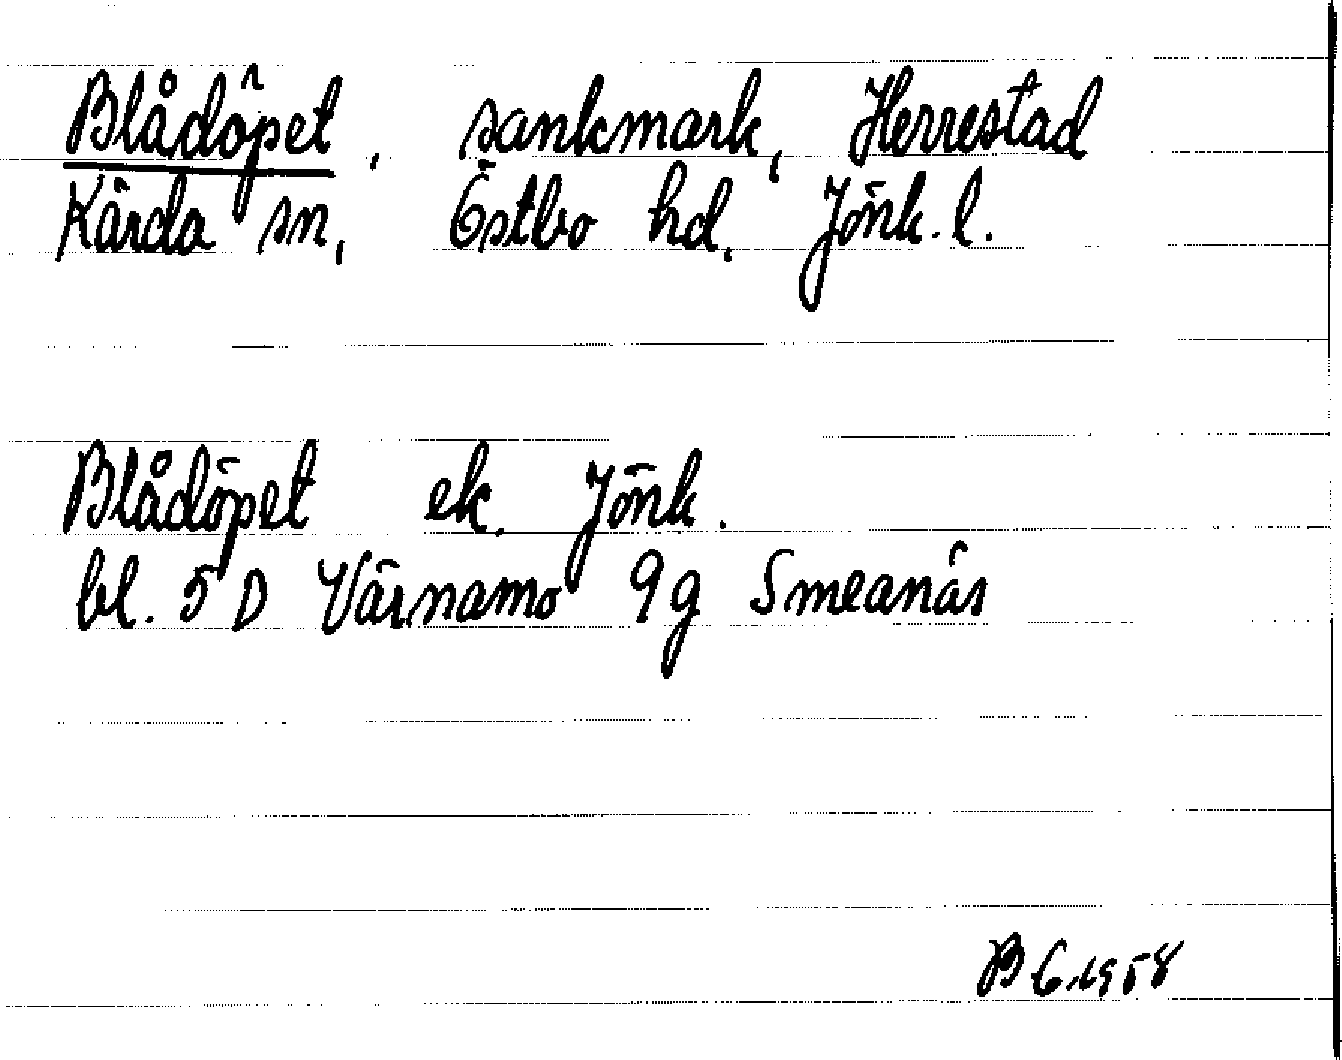 Blådöpet, sankmark, Herrestad
Kärda sn, Östbo hd. Jönk. l.
Blådöpet ek. Jönk.
bl. 5 D Värnamo 9 g Smeanäs
B 6.1958